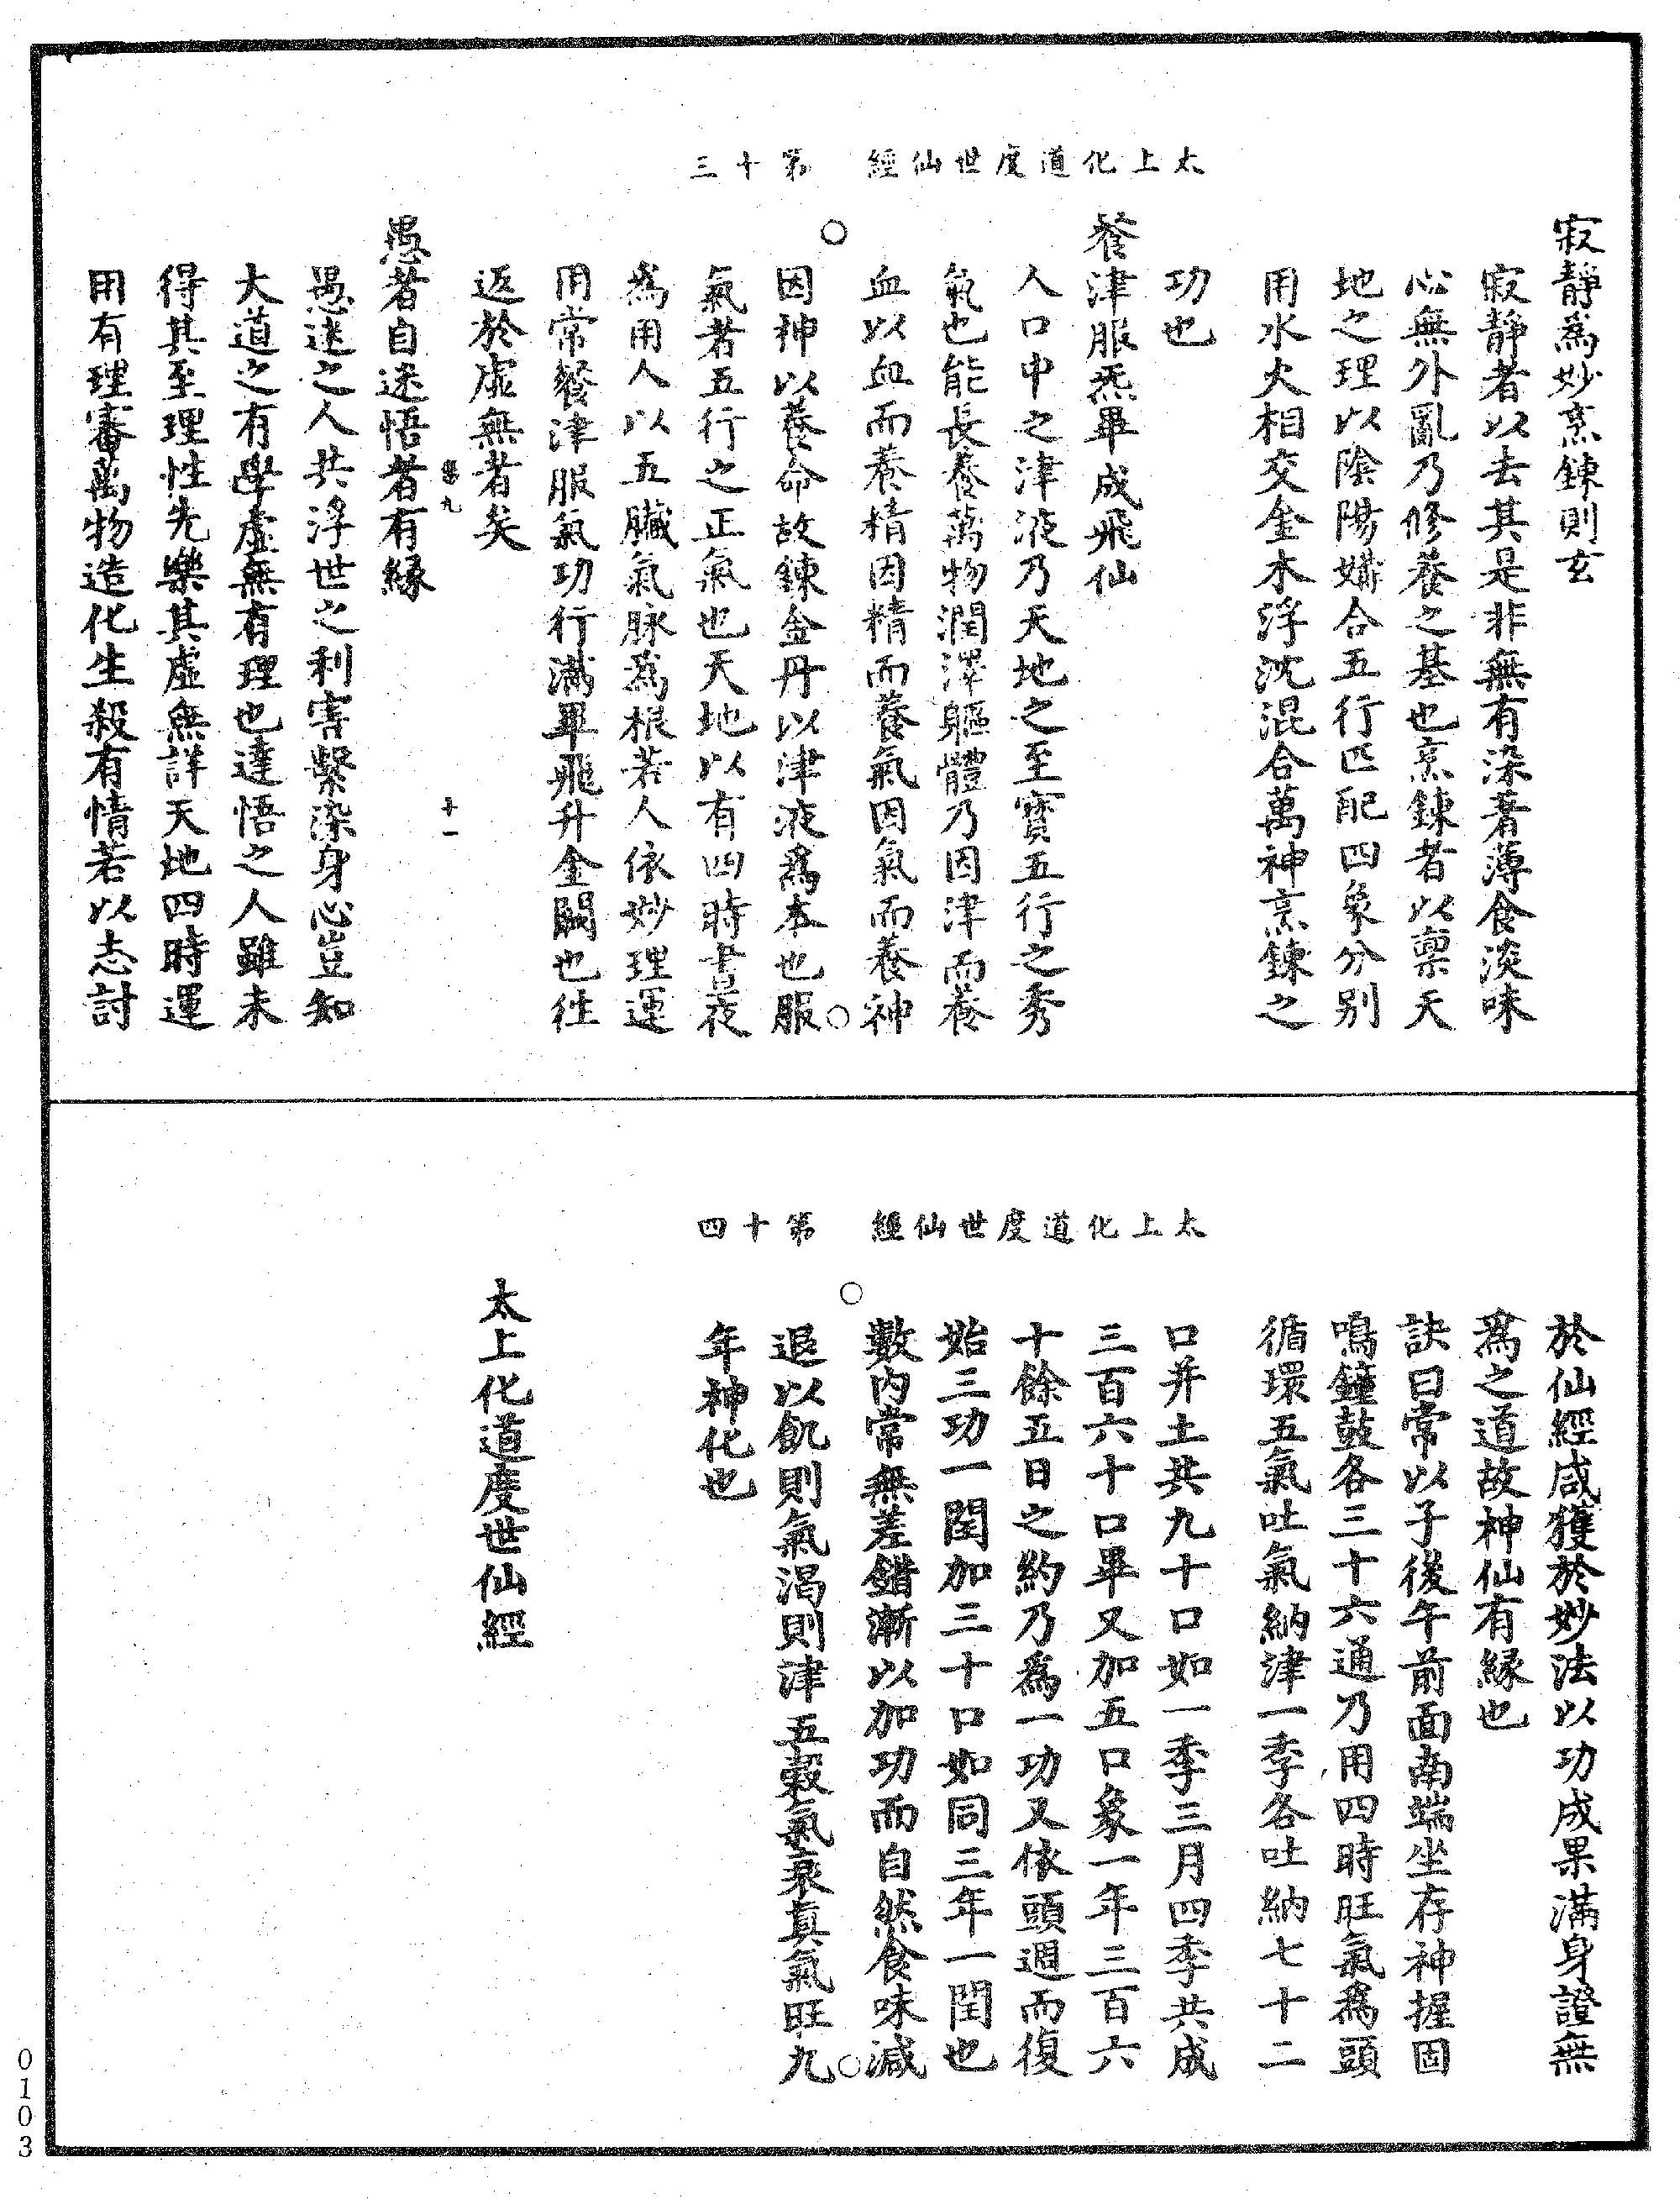 太上化道度世仙經　第十三
寂靜爲妙烹鍊則玄
寂靜者以去其是非無有染著薄食淡味
心無外亂乃修養之基也烹鍊者以禀天
地之理以陰陽媾合五行匹配四象分别
用水火相交金木浮沈混合萬神烹鍊之
功也
餐津服炁畢成飛仙
人口中之津液乃天地之至寶五行之秀
氣也能長養萬物潤澤軀體乃因津而養
血以血而養精因精而養氣因氣而養神
因神以養命故鍊金丹以津液爲本也服
氣者五行之正氣也天地以有四時晝夜
爲用人以五臟氣脉爲根若人依妙理運
用常餐津服氣功行滿畢飛升金闕也往
返於虛無者矣
十一
愚者自迷悟者有緣
愚迷之人共浮世之利害縈染身心豈知
大道之有學虛無有理也達悟之人雖未
得其至理性先樂其虛無詳天地四時運
用有理審萬物造化生殺有情若以志討
太上化道度世仙經　第十四
於仙經咸獲於妙法以功成果滿身證無
爲之道故神仙有緣也
訣曰常以子後午前面南端坐存神握固
鳴鐘鼓各三十六通乃用四時旺氣爲頭
循環五氣吐氣納津一季各吐納七十二
口并土共九十口如一季三月四季共成
三百六十口畢又加五口象一年三百六
十餘五日之約乃爲一功又依頭週而復
始三功一閏加三十口如同三年一閏也
數内常無差錯漸以加功而自然食味減
退以飢則氣渴則津五穀氣衰真氣旺九
年神化也
太上化道度世仙經
0103